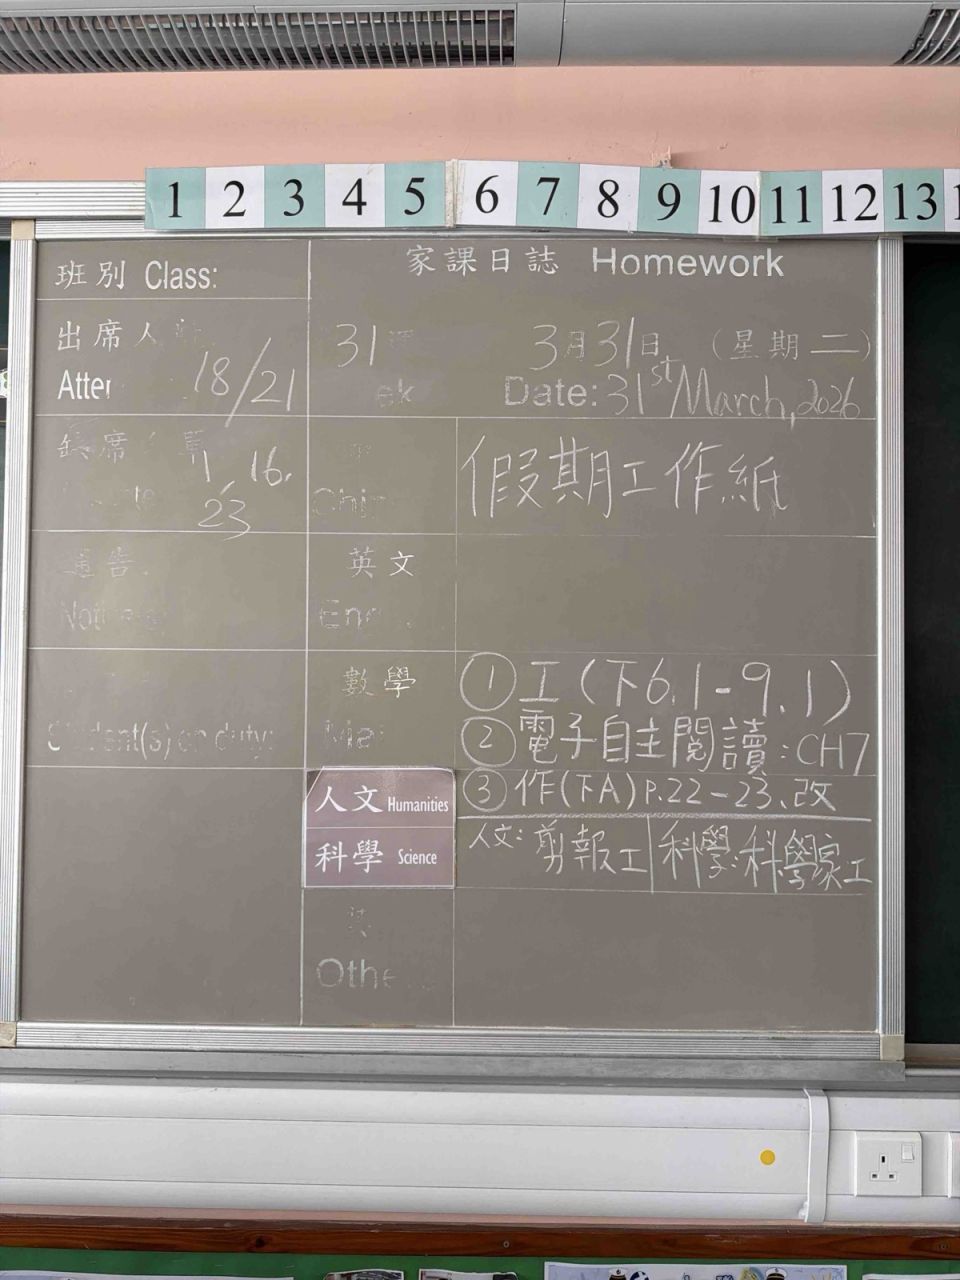 1 2 3 4 5 6 7 8 9 10 11 12 13
班別 Class:
家課日誌 Homework
出席人
Atte
18/21
31
ek
3月31日 (星期二)
Date: 31st March, 2026
席
1, 16,
23
Chi
假期工作紙
通告
英文
Eng
Student(s) on duty:
數學
Ma
① 工 (下6.1-9.1)
② 電子自主閱讀：CH7
③ 作(下A) P.22-23.改
人文 Humanities
科學 Science
人文：剪報工
科學：科學家工
Othe